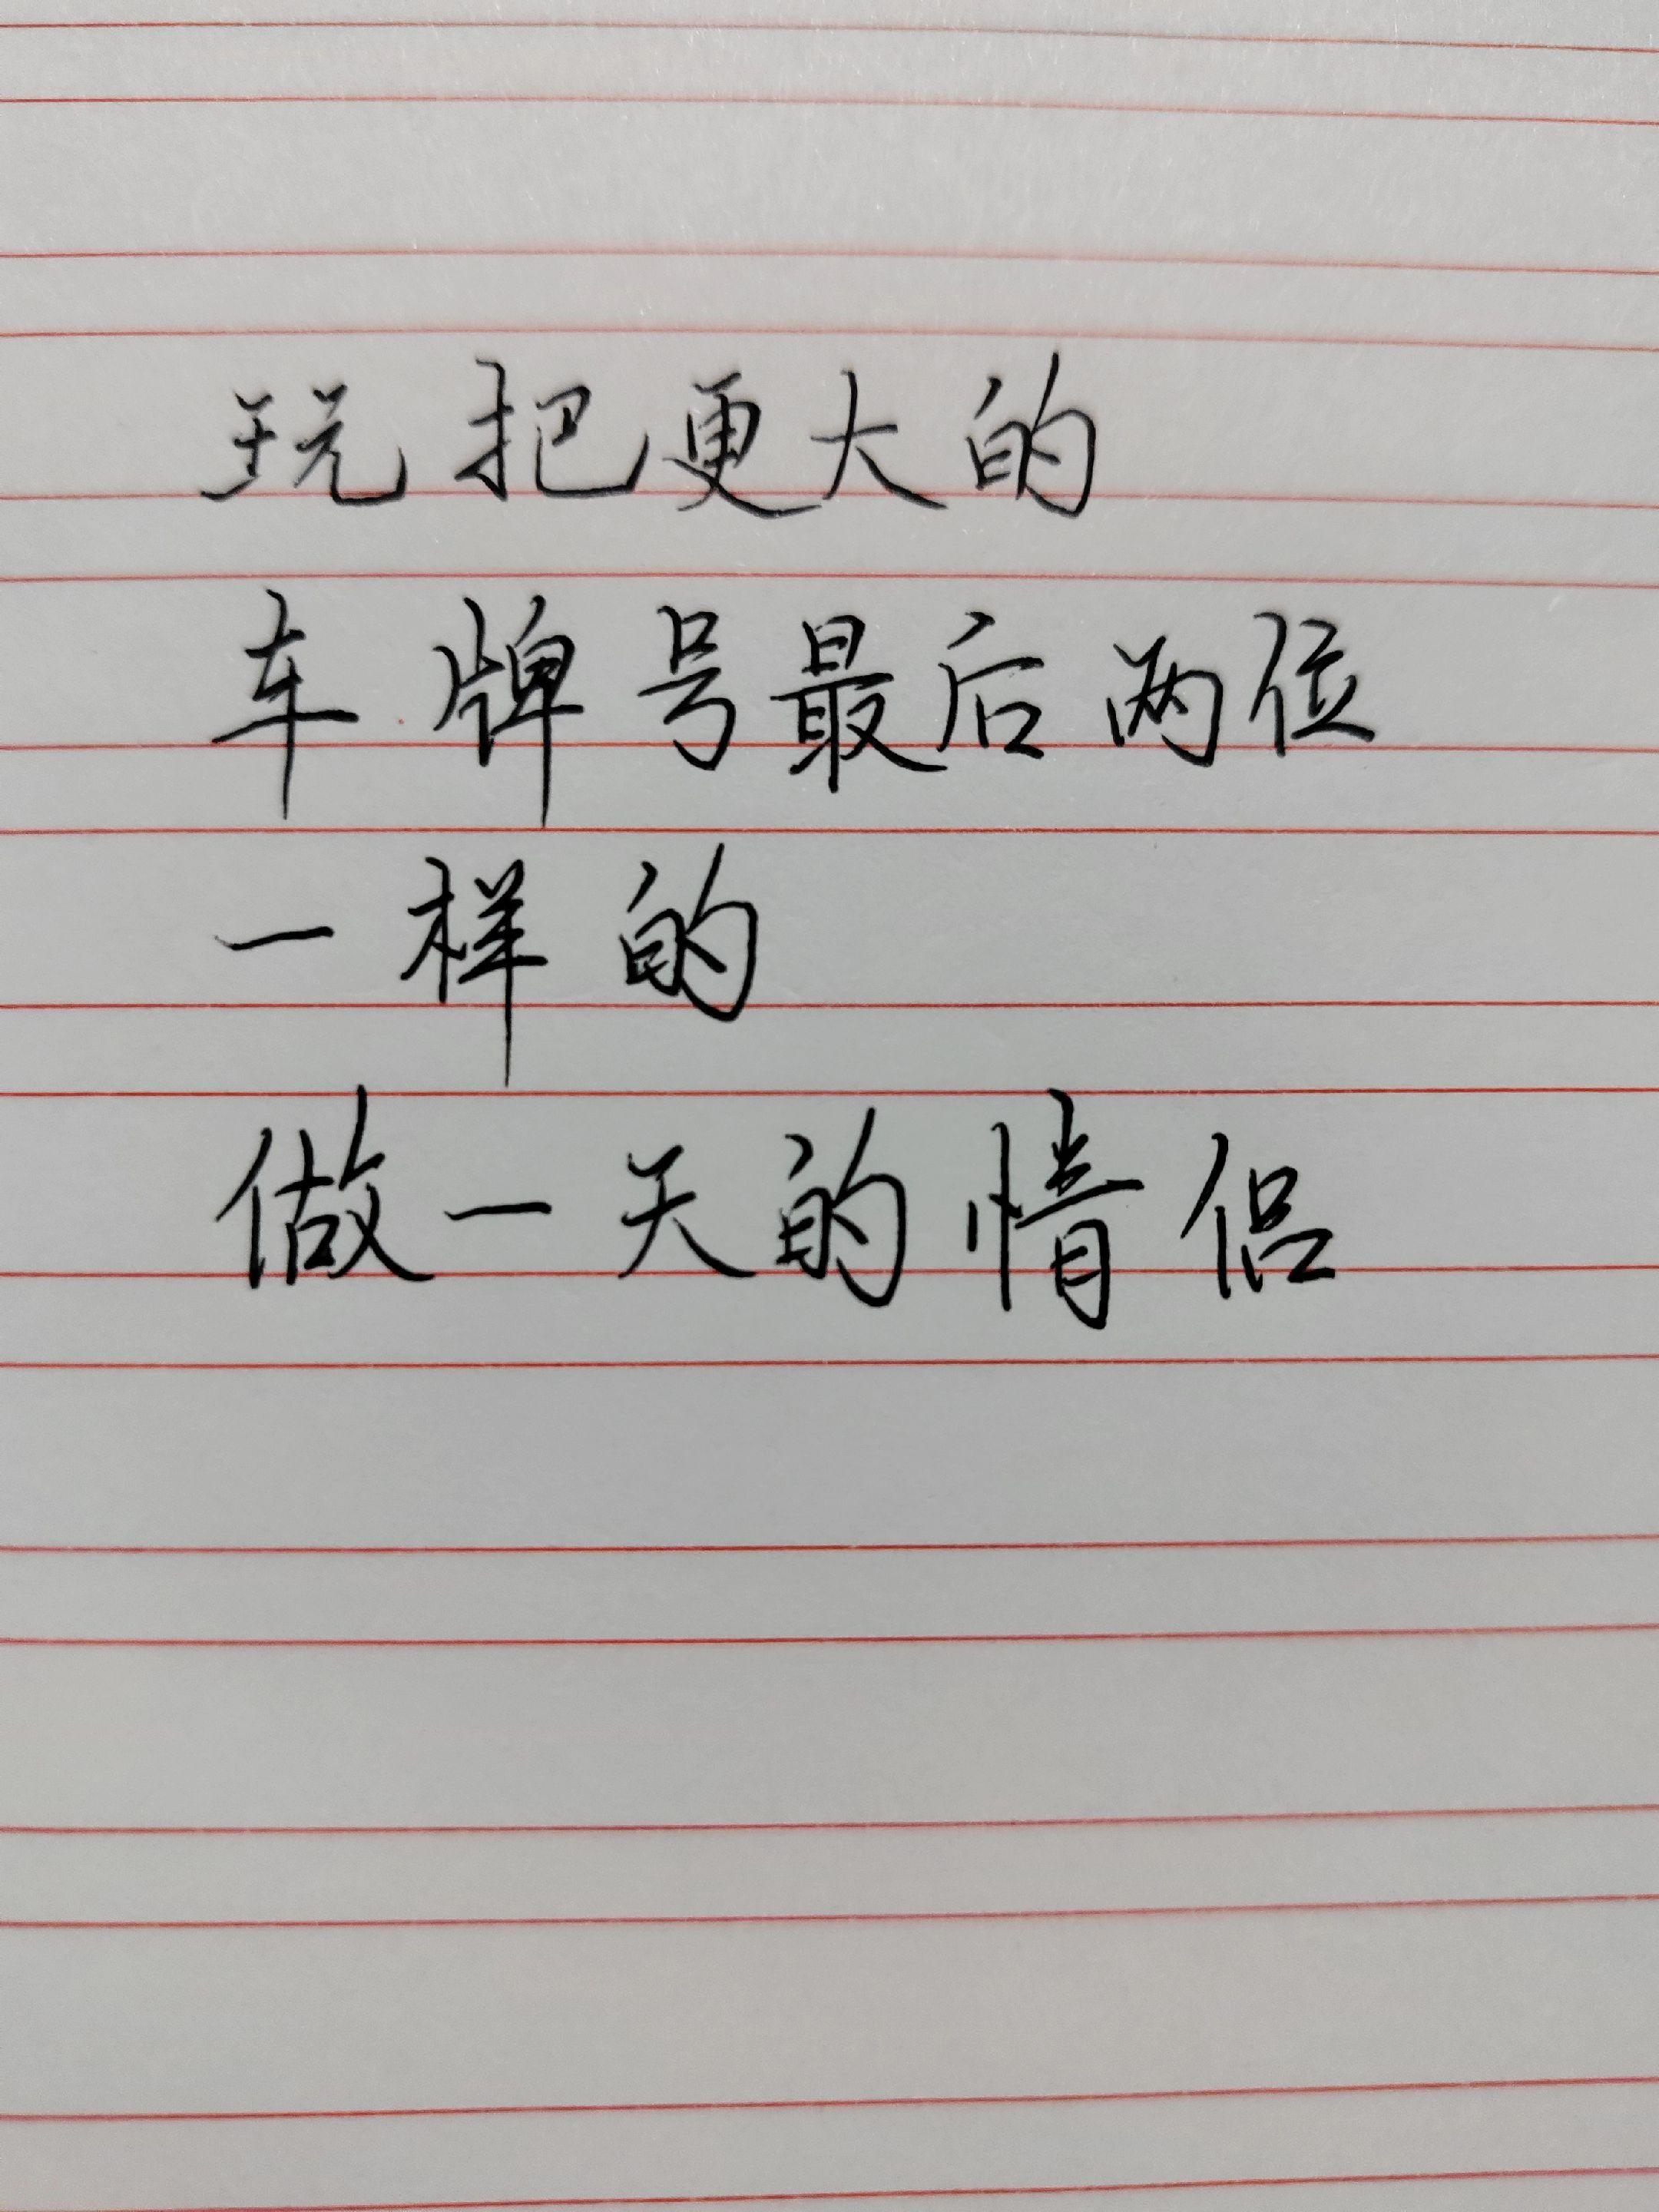 玩把更大的
车牌号最后两位
一样的
做一天的情侣